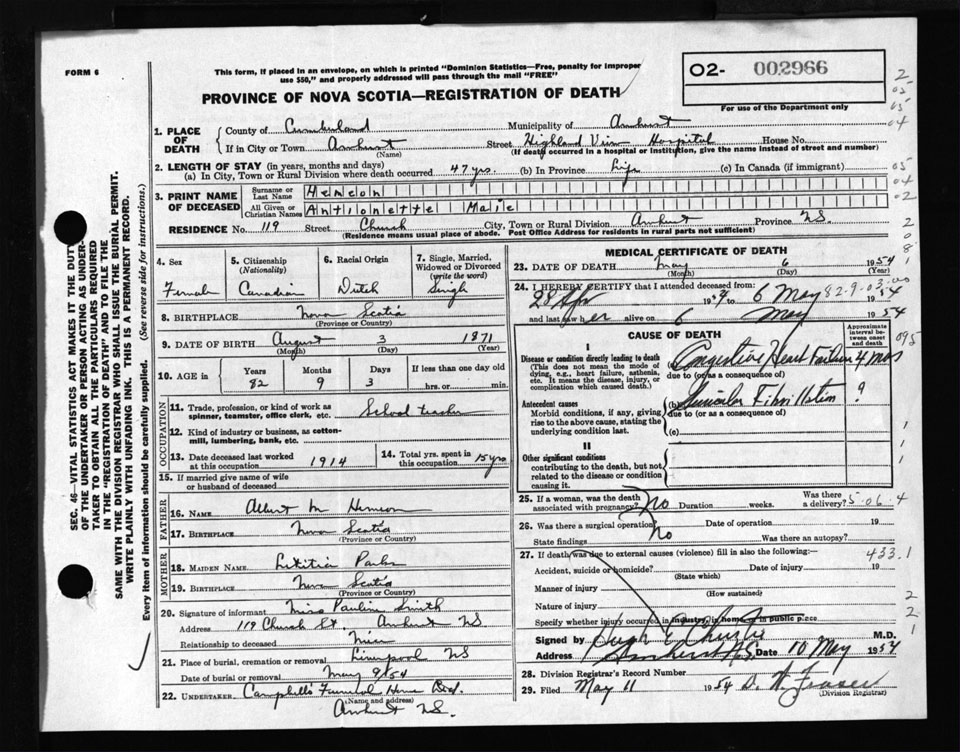 FORM 6
This form, if placed in an envelope, on which is printed "Dominion Statistics—Free, penalty for improper
use $50," and properly addressed will pass through the mail "FREE"
PROVINCE OF NOVA SCOTIA—REGISTRATION OF DEATH
O2- 002966
For use of the Department only
1. PLACE OF DEATH
County of Cumberland Municipality of Amherst
If in City or Town Amherst Street Highland View Hospital House No.
(Name) (If death occurred in a hospital or institution, give the name instead of street and number)
2. LENGTH OF STAY (in years, months and days)
(a) In City, Town or Rural Division where death occurred 47 yrs. (b) In Province Life (c) In Canada (if immigrant)
3. PRINT NAME OF DECEASED
Surname or Last Name Hemeon
All Given or Christian Names Antionette Maie
RESIDENCE No. 119 Street Church City, Town or Rural Division Amherst Province N.S.
(Residence means usual place of abode. Post Office Address for residents in rural parts not sufficient)
4. Sex Female
5. Citizenship (Nationality) Canadian
6. Racial Origin Dutch
7. Single, Married, Widowed or Divorced (write the word) Single
8. BIRTHPLACE Nova Scotia
(Province or Country)
9. DATE OF BIRTH August 3 1871
(Month) (Day) (Year)
10. AGE in Years Months Days If less than one day old
82 9 3 hrs. or min.
OCCUPATION
11. Trade, profession, or kind of work as spinner, teamster, office clerk, etc. School teacher
12. Kind of industry or business, as cotton-mill, lumbering, bank, etc.
13. Date deceased last worked at this occupation 1914
14. Total yrs. spent in this occupation 15 yrs
15. If married give name of wife or husband of deceased
FATHER
16. NAME Albert M Hemeon
17. BIRTHPLACE Nova Scotia
(Province or Country)
MOTHER
18. MAIDEN NAME Letitia Parks
19. BIRTHPLACE Nova Scotia
(Province or Country)
20. Signature of informant Miss Pauline Smith
Address 119 Church St. Amherst NS
Relationship to deceased Niece
21. Place of burial, cremation or removal Liverpool NS
Date of burial or removal May 9/54
22. UNDERTAKER Campbell's Funeral Home
(Name and address)
Amherst N.S.
MEDICAL CERTIFICATE OF DEATH
23. DATE OF DEATH May 6 1954
(Month) (Day) (Year)
24. I HEREBY CERTIFY that I attended deceased from:
28 Apr 1954 to 6 May 1954
82-9-03-00
and last saw her alive on 6 May 1954
CAUSE OF DEATH
Approximate interval between onset and death
I
Disease or condition directly leading to death
(This does not mean the mode of dying, e.g., heart failure, asthenia, etc. It means the disease, injury, or complication which caused death.)
Congestive Heart Failure 4 mos
due to (or as a consequence of)
Antecedent causes
Morbid conditions, if any, giving rise to the above cause, stating the underlying condition last.
(b) Auricular Fibrillation ?
due to (or as a consequence of)
(c)
II
Other significant conditions
contributing to the death, but not related to the disease or condition causing it.
25. If a woman, was the death associated with pregnancy? No Duration weeks. Was there a delivery?
5-06-4
26. Was there a surgical operation? No Date of operation 19
State findings Was there an autopsy?
27. If death was due to external causes (violence) fill in also the following:
433.1
Accident, suicide or homicide? Date of injury 19
(State which)
Manner of injury
(How sustained)
Nature of injury
Specify whether injury occurred in industry, in home, or in public place
Signed by M.D.
Address Amherst N.S. Date 10 May 1954
28. Division Registrar's Record Number
29. Filed May 11 1954 D. W. Fraser
(Division Registrar)
SEC. 46—VITAL STATISTICS ACT MAKES IT THE DUTY
OF THE UNDERTAKER OR PERSON ACTING AS UNDER-
TAKER TO OBTAIN ALL THE PARTICULARS REQUIRED
IN THE "REGISTRATION OF DEATH" AND TO FILE THE
SAME WITH THE DIVISION REGISTRAR WHO SHALL ISSUE THE BURIAL PERMIT.
WRITE PLAINLY WITH UNFADING INK. THIS IS A PERMANENT RECORD.
Every item of information should be carefully supplied. (See reverse side for instructions.)
2
02
05
04
05
04
02
2
0
8
1
095
1
1
1
2
2
1